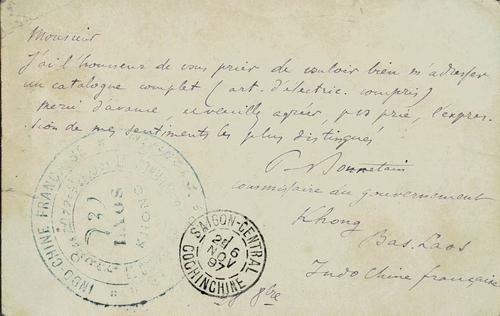 Monsieur
J'ai l'honneur de vous prier de vouloir bien m'adresser
un catalogue complet (art. d'électric. compris)
Merci d'avance et veuillez agréer, je prie, l'expres-
sion de mes sentiments les plus distingués
P. Bonnetain
commissaire du gouvernement
Khong
Bas. Laos
Indo Chine française
8bre
INDO CHINE FRANÇAISE
LAOS
KHONG
SAIGON-CENTRAL
24 6
NOV
97
COCHINCHINE